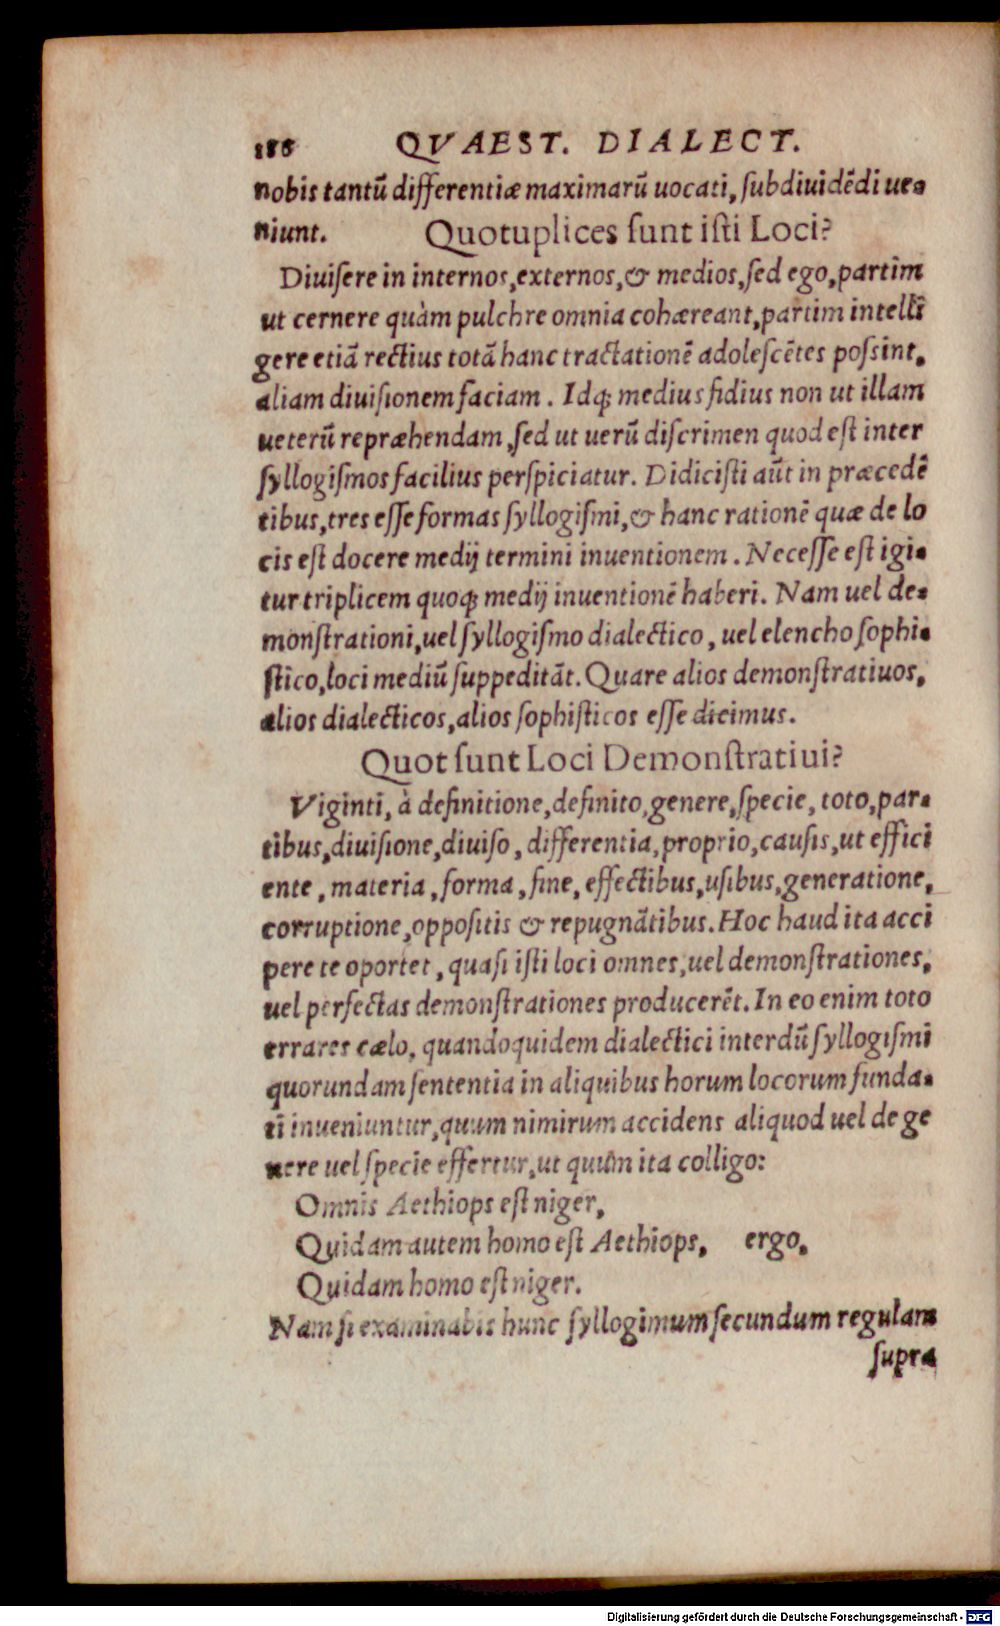 186 QVAEST. DIALECT.
nobis tantũ differentiæ maximarũ uocati, ſubdiuidẽdi ue-
niunt. Quotuplices ſunt iſti Loci?
Diuiſere in internos, externos, & medios, ſed ego, partim
ut cernere quàm pulchre omnia cohæreant, partim intelli
gere etiã rectius totã hanc tractationẽ adoleſcẽtes poſsint,
aliam diuiſionem faciam. Idq́; medius fidius non ut illam
ueterũ repræhendam, ſed ut uerũ diſcrimen quod eſt inter
ſyllogiſmos facilius perſpiciatur. Didiciſti aũt in præcedẽ
tibus, tres eſſe formas ſyllogiſmi, & hanc rationẽ quæ de lo
cis eſt docere medij termini inuentionem. Neceſſe eſt igi-
tur triplicem quoq́; medij inuentionẽ haberi. Nam uel de-
monſtrationi, uel ſyllogiſmo dialectico, uel elencho ſophi-
ſtico, loci mediũ ſuppeditãt. Quare alios demonſtratiuos,
alios dialecticos, alios ſophiſticos eſſe dicimus.
Quot ſunt Loci Demonſtratiui?
Viginti, à definitione, definito, genere, ſpecie, toto, par-
tibus, diuiſione, diuiſo, differentia, proprio, cauſis, ut effici
ente, materia, forma, fine, effectibus, uſibus, generatione,
corruptione, oppoſitis & repugnãtibus. Hoc haud ita acci
pere te oportet, quaſi iſti loci omnes, uel demonſtrationes,
uel perfectas demonſtrationes producerẽt. In eo enim toto
errares cælo, quandoquidem dialectici interdũ ſyllogiſmi
quorundam ſententia in aliquibus horum locorum funda-
ti inueniuntur, quum nimirum accidens aliquod uel de ge
nere uel ſpecie effertur, ut quũm ita colligo:
Omnis Aethiops eſt niger,
Quidam autem homo eſt Aethiops, ergo,
Quidam homo eſt niger.
Nam ſi examinabis hunc ſyllogimum ſecundum regulam
ſupra
Digitalisierung gefördert durch die Deutsche Forschungsgemeinschaft - DFG